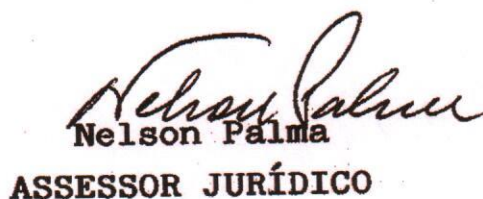 Nelson Palma
Nelson Palma
ASSESSOR JURÍDICO